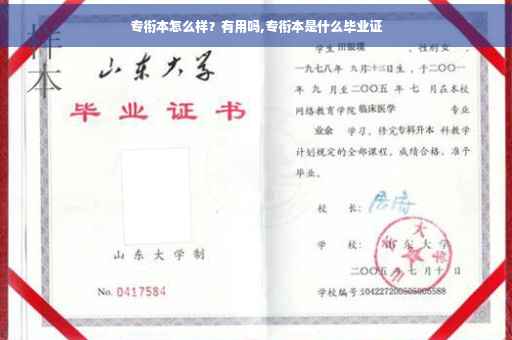 专衔本怎么样？有用吗,专衔本是什么毕业证
样本
山东大学
毕业证书
山东大学制
No. 0417584
学生 田银璞 ，性别女 ，
一九七八年 九月十三日生，于二〇〇一
年 九 月至二〇〇五 年 七 月在本校
网络教育学院 临床医学 专业
业余 学习，修完专科升本 科教学
计划规定的全部课程，成绩合格，准予
毕业。
校 长：
学 校：山东大学
二〇〇五 年 七 月 十 日
学校编号：104227200505005588